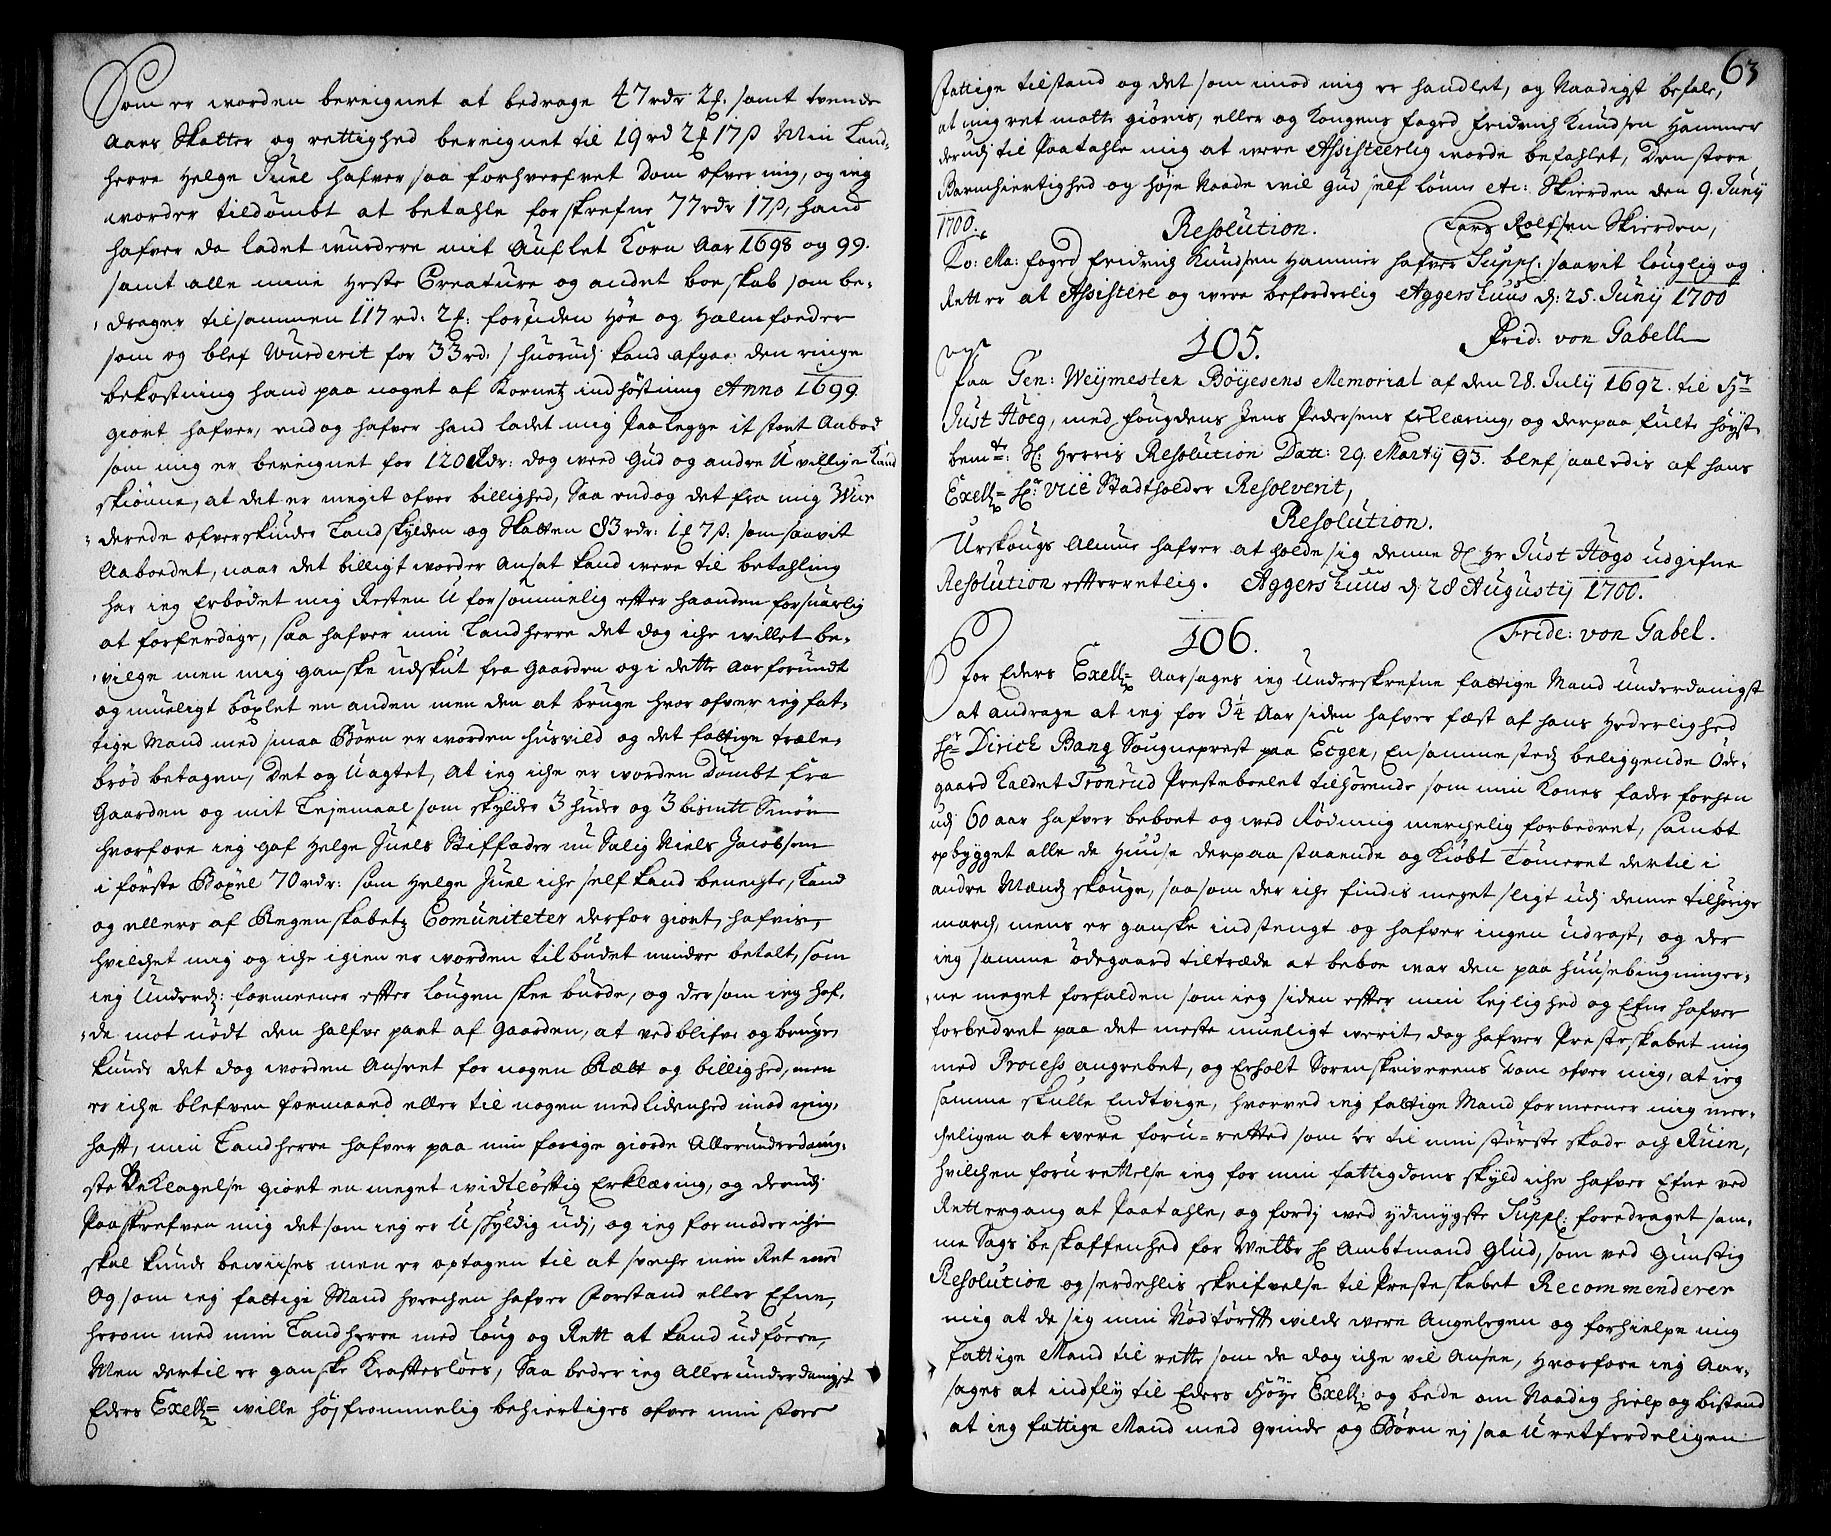 Som er worden bereignet at bedrage 47 rdr 2 ȝ. samt tvende
Aars Skatter og rettighed bereignet til 19 rd 2 ȝ 17 β Min Land-
herre Helge Juel hafver saa forhverfvet Dom ofver mig, og ieg
worder tildømbt at betahle forskrefne 77 rdr 17 β, hand
hafver da ladet wurdere mit Auflet Korn Aar 1698 og 99.
samt alle mine Heste Creature og andet boeskab som be-
drager tilsammen 117 rd: 2 ȝ: foruden Høe og Halmfoeder
som og blef Wurderit for 33 rd: / huorudj kand afgaa den ringe
bekostning hand paa noget af Kornetz indhøstning Anno 1699
giort hafver, endog hafver hand ladet mig Paalegge it stort Aabod
som mig er bereignet for 120 Rdr: dog weed Gud og andre U villige Kand
skiønne, at det er megit ofver billighed, Saa endog det fra mig Wur
derede ofverskinder Landskylden og Skatten 83 rdr: 1 ȝ 7 β: som saavit
Aaboedet, naar det billigt worder Ansat kand were til betahling
har ieg Erbødet mig Resten U forsømmelig efter haanden forsuarlig
at forferdige, saa hafver min Landherre det dog iche willet be-
vilge men mig ganske udskut fra Gaarden og i dette Aar forundt
og mueligt böxlet en anden men den at bruge hvor ofver ieg fat-
tige Mand med smaa Børn er worden husvild og det fattige træle-
brød betagen, Det og Uagtet, At ieg iche er worden Dømbt fra
Gaarden og mit Lejemaal som skylder 3 huder og 3 bismtt Smör
hvorfore ieg gaf Helge Juels Stiffader nu Salig Niels Jacobsen
i første Böxel 70 rdr: som Helge Juel iche self kand benechte, Kand
og ellers af Regenskabetz Comuniteter derfor giort, hafvis,
hvilchet mig og iche igien er worden tilbudet mindre betalt, som
ieg Underd: formeener efter lougen skee burde, og dersom ieg haf-
de mot nødt den halfve part af Gaarden, at vedblifve og bruge,
kunde det dog worden Anseet for nogen Rætt og billighed, men
er iche blefven formaaed eller til nogen medlidenhed imod mig
haft, min Landherre hafver paa min forige giorde Allerunderdanig-
ste Beklagelse giort en meget widtløftig Erklæring, og derudj
Paaskrefven mig det som ieg er Uskyldig udj, og ieg formoder iche
skal kunde bewiises men er optagen til at sveche min Ret med
Og som ieg fattige Mand hverchen hafver Forstand eller Efne,
herom med min Landherre med loug og Rett at kand udføere,
Men dertil er ganske Kraftesløes, Saa beder ieg Allerunderdanigst
Eders Exell: wille høj frommelig behiertiges ofver min store
63
fattige tilstand og det som imod mig er handlet, og Naadigst befale,
at mig ret motte giøris, eller og Kongens foged Fridrich Knudsen Hammer
derudj til Paatahle mig at were Assisteerlig worde befahlet, Den store
Barmhiertighed og høje Naade wil gud self lønne etc: Skierden den 9. Junij
1700. Resolution. Lars Rolfsen Skierden,
Ko: Ma: foged Fridrich Knudsen Hammer hafver Suppl. saavit louglig og
Rett er at Assistere og were beforderlig Aggershuus d: 25. Junij 1700
105. Frid: von Gabell
Paa Gen: Weijmester Böijesens Memorial af den 28. Julij 1692. til Hr
Just Höeg, med fougdens Jens Pedersens Erklæring, og derpaa fulte høyst-
bemte: Sl: Herris Resolution Dat: 29. Martij 93. blef saaledis af hans
Exell: Hr: Vice Stadtholder Resolverit,
Resolution.
Urskougs Almue hafver at holde sig denne Sl Hr Just Högs udgifne
Resolution efterretlig. Aggershuus d: 28 Augustij 1700.
106. Fride: von Gabel.
For Eders Exell: Aarsages ieg Underskrefne fattige Mand Underdanigst
at andrage at ieg for 3 1/4 Aar siden hafver fæst af hans Hederlighed
Hr Dirich Bang Sougneprest paa Ecger, En sammestedz beliggende Öde-
gaard Kaldet Tronrud Presteboelet tilhørende som min Kones fader forhen
udj 60 aar hafver beboet og wed Rødning merchelig forbedret, sambt
opbygget alle de Huuse derpaa staaende og Kiøbt Tømeret dertil i
andre Mændz skouge, saasom der iche findis meget sligt udj denne tilhørige
march, mens er ganske indstengt og hafver ingen udrast, og der
ieg samme ödegaard tiltræde at beboe war den paa huusebÿgninger-
ne meget forfalden som ieg siden efter min lejlighed og Efne hafver
forbedret paa det meste mueligt werit, dog hafver Presteskabet mig
med Process angrebet, og Erholt Sorenskriverens Dom ofver mig, at ieg
samme skulle Endtvige, hvorved ieg fattige Mand formeener mig mer-
cheligen at were foru-retted som er til min störste skade och Ruin,
hvilchen foru rettelse ieg for min fattigdoms skyld iche hafver Efne ved
Rettergang at Paatahle, og fordj wed ydmygste Suppl: foredraget sam-
me Sags beskaffenhed for Welbr Hr Ambtmand Glud, som ved gunstig
Resolution og serdehlis skrifvelse til Presteskabet Recommenderer
mig at de sig min Nødtörft wilde were Angelegen og forhielpe mig
fattige Mand til rette som de dog iche vil Ansee, Hvorfore ieg Aar-
sages at indfly til Eders Høye Exell: og bede om Naadig hielp og bistand
at ieg fattige Mand med qvinde og Børn ej saa U retferdeligen